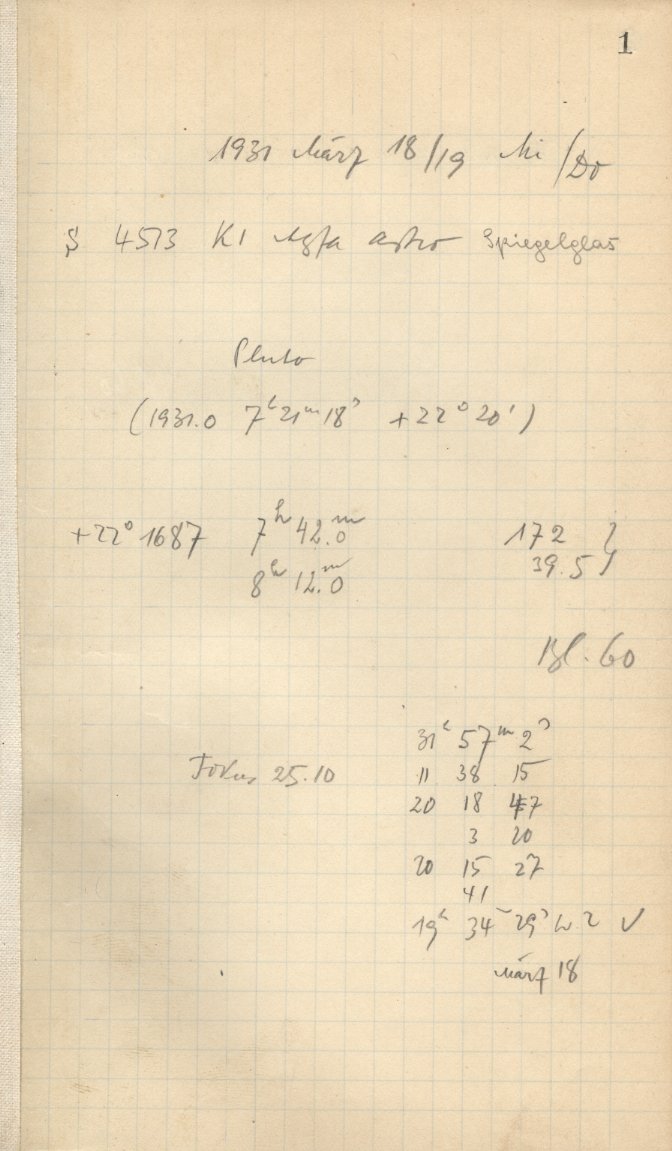 1
1931 März 18/19 Mi/Do
S 4513 K1 Agfa Astro Spiegelglas
Pluto
(1931.0 7ʰ21ᵐ18ˢ +22° 20')
+22° 1687 7ʰ 42.ᵐ0 172 }
8ʰ 12.ᵐ0 39.5 }
Bl. 60
31ʰ 57ᵐ 2ˢ
Fokus 25.10 11 38 15
20 18 47
3 20
20 15 27
41
19ʰ 34ᵐ 29ˢ ✓
März 18